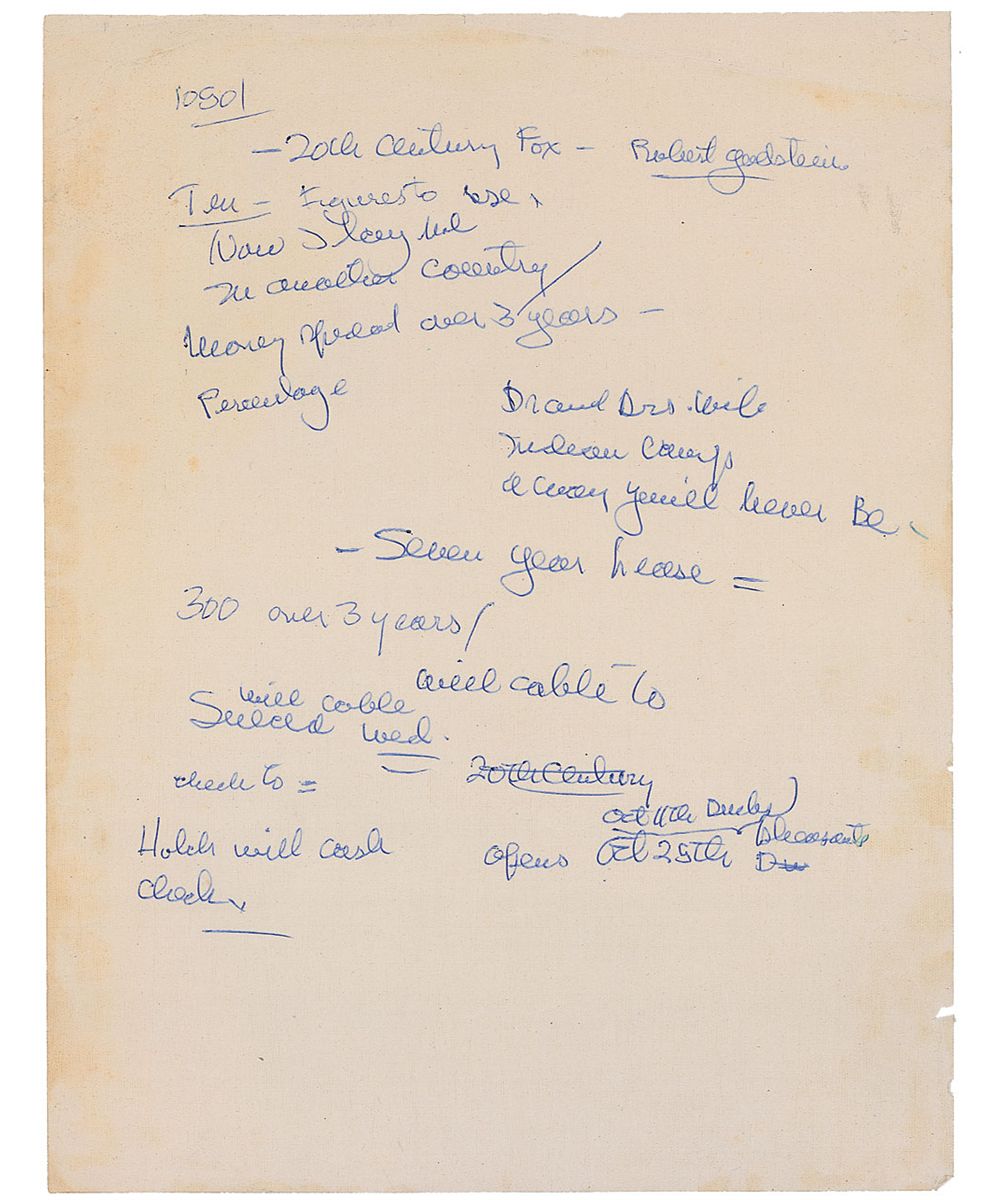 10801
— 20th Century Fox — Robert Goldstein
Ten — Figures to use,
Now I lay me
In another Country /
Money spread over 3 years —
Percentage
Dr and Drs. Wife
Indean Camp
A way you'll never Be
— Seven year lease =
300 over 3 years /
will cable to
will cable
Wed.
check to =
20th Century
Oct 11th
opens Oct 25th
Hotch will cash
check,